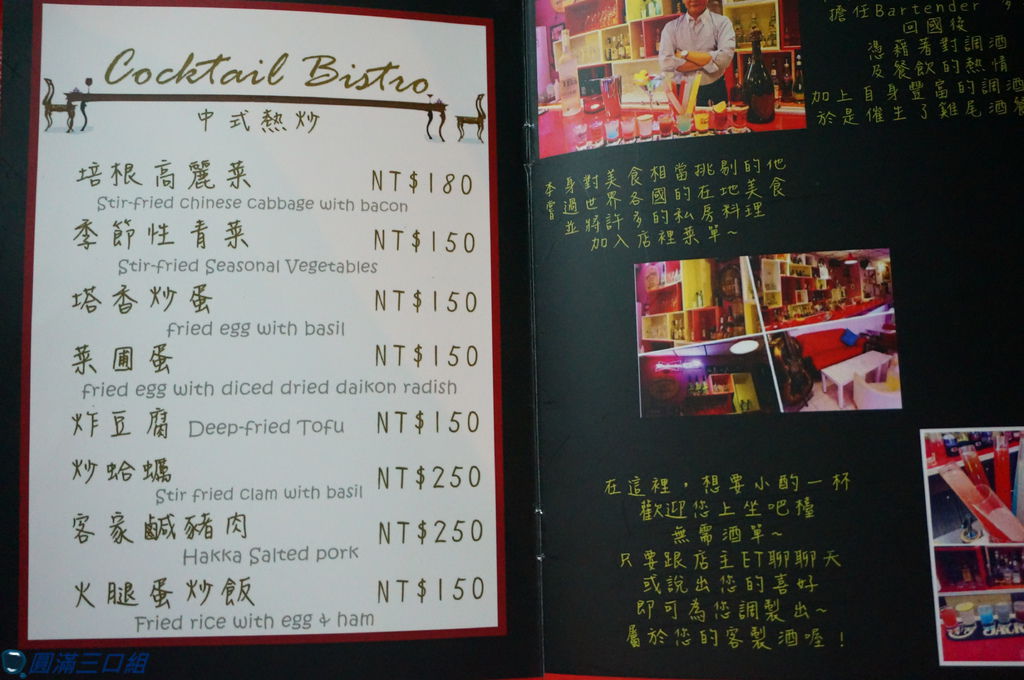 Cocktail Bistro
中式熱炒
培根高麗菜 NT$180
Stir-fried chinese cabbage with bacon
季節性青菜 NT$150
Stir-fried Seasonal Vegetables
塔香炒蛋 NT$150
fried egg with basil
菜圃蛋 NT$150
fried egg with diced dried daikon radish
炸豆腐 Deep-fried Tofu NT$150
炒蛤蠣 NT$250
Stir fried clam with basil
客家鹹豬肉 NT$250
Hakka Salted pork
火腿蛋炒飯 NT$150
Fried rice with egg & ham
擔任Bartender 多
回國後
憑藉著對調酒
及餐飲的熱情
加上自身豐富的調酒
於是催生了雞尾酒餐
本身對美食相當挑剔的他
嘗過世界各國的在地美食
並將許多的私房料理
加入店裡菜單~
在這裡，想要小酌一杯
歡迎您上坐吧檯
無需酒單~
只要跟店主ET聊聊天
或說出您的喜好
即可為您調製出~
屬於您的客製酒喔！
JACK
圓滿三口組